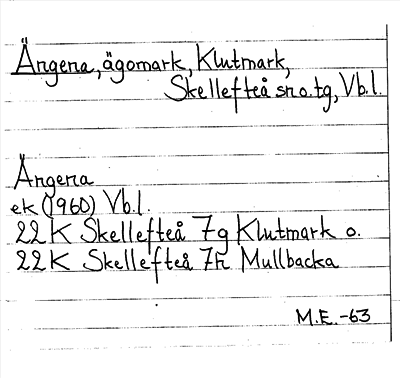 Ängena, ägomark, Klutmark,
Skellefteå sn o. tg, Vb.l.
Ängena
ek (1960) Vb.l.
22 K Skellefteå 7g Klutmark o.
22 K Skellefteå 7h Mullbacka
M.E. -63